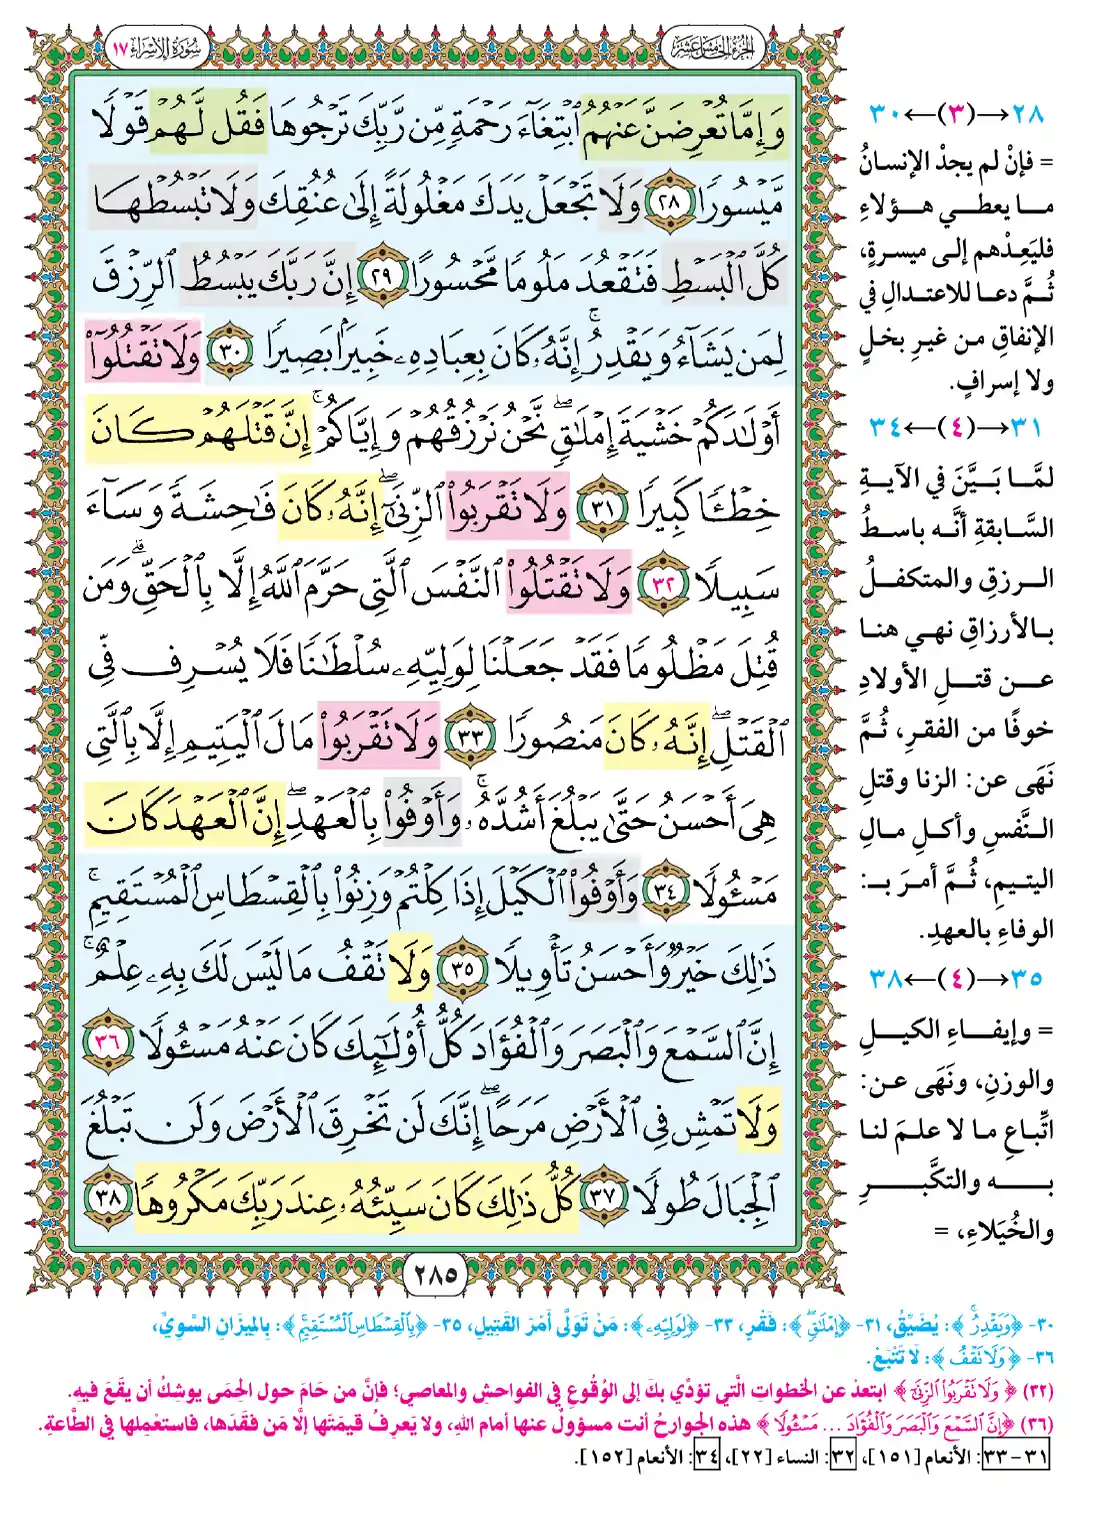 الجزء الخامس عشر
سورة الإسراء ١٧
وَإِمَّا تُعْرِضَنَّ عَنْهُمُ ٱبْتِغَآءَ رَحْمَةٍ مِّن رَّبِّكَ تَرْجُوهَا فَقُل لَّهُمْ قَوْلًا
مَّيْسُورًا ٢٨ وَلَا تَجْعَلْ يَدَكَ مَغْلُولَةً إِلَىٰ عُنُقِكَ وَلَا تَبْسُطْهَا
كُلَّ ٱلْبَسْطِ فَتَقْعُدَ مَلُومًا مَّحْسُورًا ٢٩ إِنَّ رَبَّكَ يَبْسُطُ ٱلرِّزْقَ
لِمَن يَشَآءُ وَيَقْدِرُ ۚ إِنَّهُۥ كَانَ بِعِبَادِهِۦ خَبِيرًۢا بَصِيرًا ٣٠ وَلَا تَقْتُلُوٓا۟
أَوْلَـٰدَكُمْ خَشْيَةَ إِمْلَـٰقٍ ۖ نَّحْنُ نَرْزُقُهُمْ وَإِيَّاكُمْ ۚ إِنَّ قَتْلَهُمْ كَانَ
خِطْـًٔا كَبِيرًا ٣١ وَلَا تَقْرَبُوا۟ ٱلزِّنَىٰٓ ۖ إِنَّهُۥ كَانَ فَـٰحِشَةً وَسَآءَ
سَبِيلًا ٣٢ وَلَا تَقْتُلُوا۟ ٱلنَّفْسَ ٱلَّتِى حَرَّمَ ٱللَّهُ إِلَّا بِٱلْحَقِّ ۗ وَمَن
قُتِلَ مَظْلُومًا فَقَدْ جَعَلْنَا لِوَلِيِّهِۦ سُلْطَـٰنًا فَلَا يُسْرِف فِّى
ٱلْقَتْلِ ۖ إِنَّهُۥ كَانَ مَنصُورًا ٣٣ وَلَا تَقْرَبُوا۟ مَالَ ٱلْيَتِيمِ إِلَّا بِٱلَّتِى
هِىَ أَحْسَنُ حَتَّىٰ يَبْلُغَ أَشُدَّهُۥ ۚ وَأَوْفُوا۟ بِٱلْعَهْدِ ۖ إِنَّ ٱلْعَهْدَ كَانَ
مَسْـُٔولًا ٣٤ وَأَوْفُوا۟ ٱلْكَيْلَ إِذَا كِلْتُمْ وَزِنُوا۟ بِٱلْقِسْطَاسِ ٱلْمُسْتَقِيمِ ۚ
ذَٰلِكَ خَيْرٌ وَأَحْسَنُ تَأْوِيلًا ٣٥ وَلَا تَقْفُ مَا لَيْسَ لَكَ بِهِۦ عِلْمٌ ۚ
إِنَّ ٱلسَّمْعَ وَٱلْبَصَرَ وَٱلْفُؤَادَ كُلُّ أُو۟لَـٰٓئِكَ كَانَ عَنْهُ مَسْـُٔولًا ٣٦
وَلَا تَمْشِ فِى ٱلْأَرْضِ مَرَحًا ۖ إِنَّكَ لَن تَخْرِقَ ٱلْأَرْضَ وَلَن تَبْلُغَ
ٱلْجِبَالَ طُولًا ٣٧ كُلُّ ذَٰلِكَ كَانَ سَيِّئُهُۥ عِندَ رَبِّكَ مَكْرُوهًا ٣٨
٢٨→(٣)←٣٠
= فإنْ لم يجدْ الإنسانُ
ما يعطي هؤلاءِ
فليَعِدْهم إلى ميسرةٍ،
ثُمَّ دعا للاعتدالِ في
الإنفاقِ من غيرِ بخلٍ
ولا إسرافٍ.
٣١→(٤)←٣٤
لمَّا بَيَّنَ في الآيةِ
السَّابقةِ أنَّه باسطُ
الرزقِ والمتكفلُ
بالأرزاقِ نهي هنا
عن قتلِ الأولادِ
خوفًا من الفقرِ، ثُمَّ
نَهَى عن: الزنا وقتلِ
النَّفسِ وأكلِ مالِ
اليتيمِ، ثُمَّ أمرَ بـ:
الوفاءِ بالعهدِ.
٣٥→(٤)←٣٨
= وإيفاءِ الكيلِ
والوزنِ، ونَهَى عن:
اتِّباعِ ما لا علمَ لنا
به والتكَّبرِ
والخُيَلاءِ، =
٢٨٥
٣٠- ﴿وَيَقْدِرُ ۚ﴾: يُضَيِّقُ، ٣١- ﴿إِمْلَـٰقٍ ۖ﴾: فَقْرٍ، ٣٣- ﴿لِوَلِيِّهِۦ﴾: مَنْ تَوَلَّى أَمْرَ القَتِيلِ، ٣٥- ﴿بِٱلْقِسْطَاسِ ٱلْمُسْتَقِيمِ ۚ﴾: بِالمِيزَانِ السَّوِيِّ،
٣٦- ﴿وَلَا تَقْفُ﴾: لَا تَتَّبِعْ.
(٣٢) ﴿وَلَا تَقْرَبُوا۟ ٱلزِّنَىٰٓ﴾ ابتعدْ عن الخطواتِ الَّتي تؤدِّي بكَ إلى الوُقُوعِ في الفواحشِ والمعاصي؛ فإنَّ من حَامَ حول الحِمَى يوشكُ أن يقَعَ فيهِ.
(٣٦) ﴿إِنَّ ٱلسَّمْعَ وَٱلْبَصَرَ وَٱلْفُؤَادَ ... مَسْـُٔولًا﴾ هذه الجوارحُ أنت مسؤولٌ عنها أمام اللهِ، ولا يَعرِفُ قيمَتَها إلَّا مَن فقدَها، فاستعْمِلها في الطَّاعةِ.
٣١-٣٣: الأنعام [١٥١]، ٣٢: النساء [٢٢]، ٣٤: الأنعام [١٥٢].